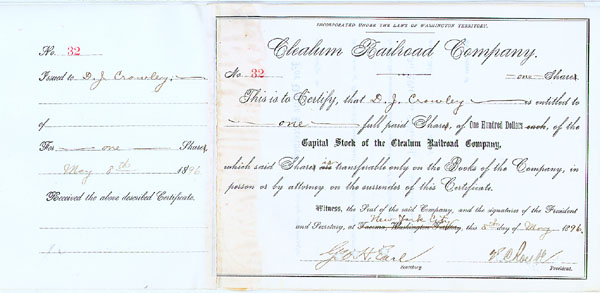 No. 32
Issued to D. J. Crowley
of
For one Shares
May 8th 1896
Received the above described Certificate.
INCORPORATED UNDER THE LAWS OF WASHINGTON TERRITORY.
Clealum Railroad Company.
No. 32 one Shares
This is to Certify, that D. J. Crowley is entitled to
one full paid Shares, of One Hundred Dollars each, of the
Capital Stock of the Clealum Railroad Company,
which said Shares transferable only on the Books of the Company, in
person or by attorney on the surrender of this Certificate.
Witness, the Seal of the said Company, and the signatures of the President
New York City
and Secretary, at Tacoma, Washington Territory, this 8th day of May 1896.
Geo. H. Earl
Secretary President.